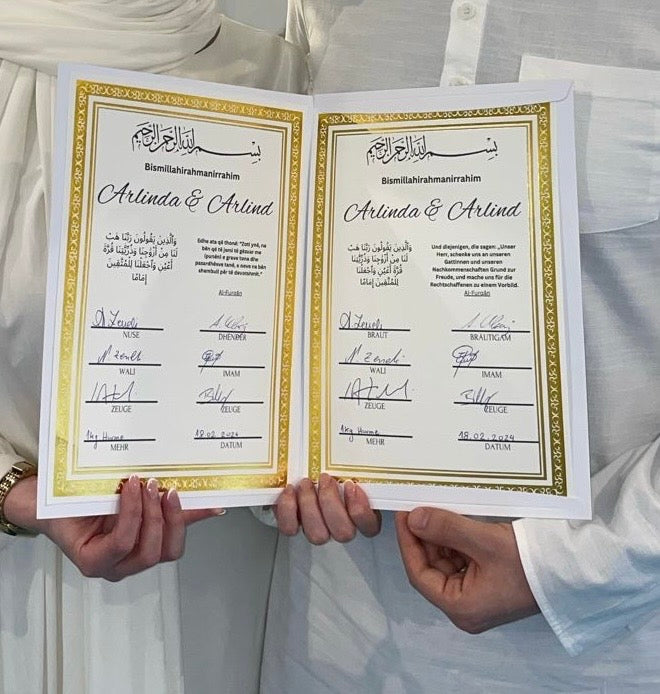 بِسْمِ اللَّهِ الرَّحْمَنِ الرَّحِيمِ
Bismillahirahmanirrahim
Arlinda & Arlind
وَالَّذِينَ يَقُولُونَ رَبَّنَا هَبْ
لَنَا مِنْ أَزْوَاجِنَا وَذُرِّيَّتِنَا قُرَّةَ
أَعْيُنٍ وَاجْعَلْنَا لِلْمُتَّقِينَ
إِمَامًا
Edhe ata që thonë: "Zoti ynë, na
bën që të jemi të gëzuar me
(punën) e grave tona dhe
pasardhësve tanë, e neve na bën
shembull për të devotshmit.
Al-Furqān
NUSE
DHENDËR
WALI
IMAM
ZEUGE
ZEUGE
1kg Hurme
MEHR
18.02.2024
DATUM
بِسْمِ اللَّهِ الرَّحْمَنِ الرَّحِيمِ
Bismillahirahmanirrahim
Arlinda & Arlind
وَالَّذِينَ يَقُولُونَ رَبَّنَا هَبْ
لَنَا مِنْ أَزْوَاجِنَا وَذُرِّيَّتِنَا
قُرَّةَ أَعْيُنٍ وَاجْعَلْنَا
لِلْمُتَّقِينَ إِمَامًا
Und diejenigen, die sagen: „Unser
Herr, schenke uns an unseren
Gattinnen und unseren
Nachkommenschaften Grund zur
Freude, und mache uns für die
Rechtschaffenen zu einem Vorbild.
Al-Furqān
BRAUT
BRÄUTIGAM
WALI
IMAM
ZEUGE
ZEUGE
1kg Hurme
MEHR
18.02.2024
DATUM